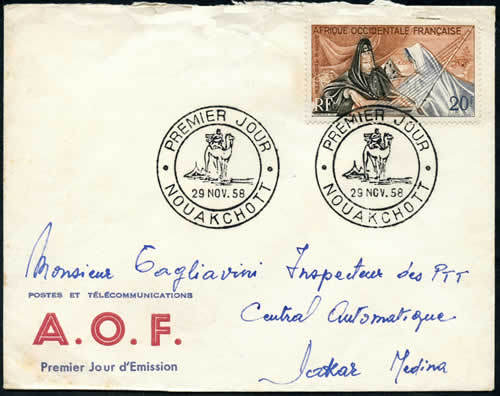 AFRIQUE OCCIDENTALE FRANÇAISE
RF 20F
PREMIER JOUR
29 NOV. 58
NOUAKCHOTT
PREMIER JOUR
29 NOV. 58
NOUAKCHOTT
Monsieur Tagliavini Inspecteur des PTT
Central Automatique
Dakar Medina
POSTES ET TÉLÉCOMMUNICATIONS
A.O.F.
Premier Jour d'Emission